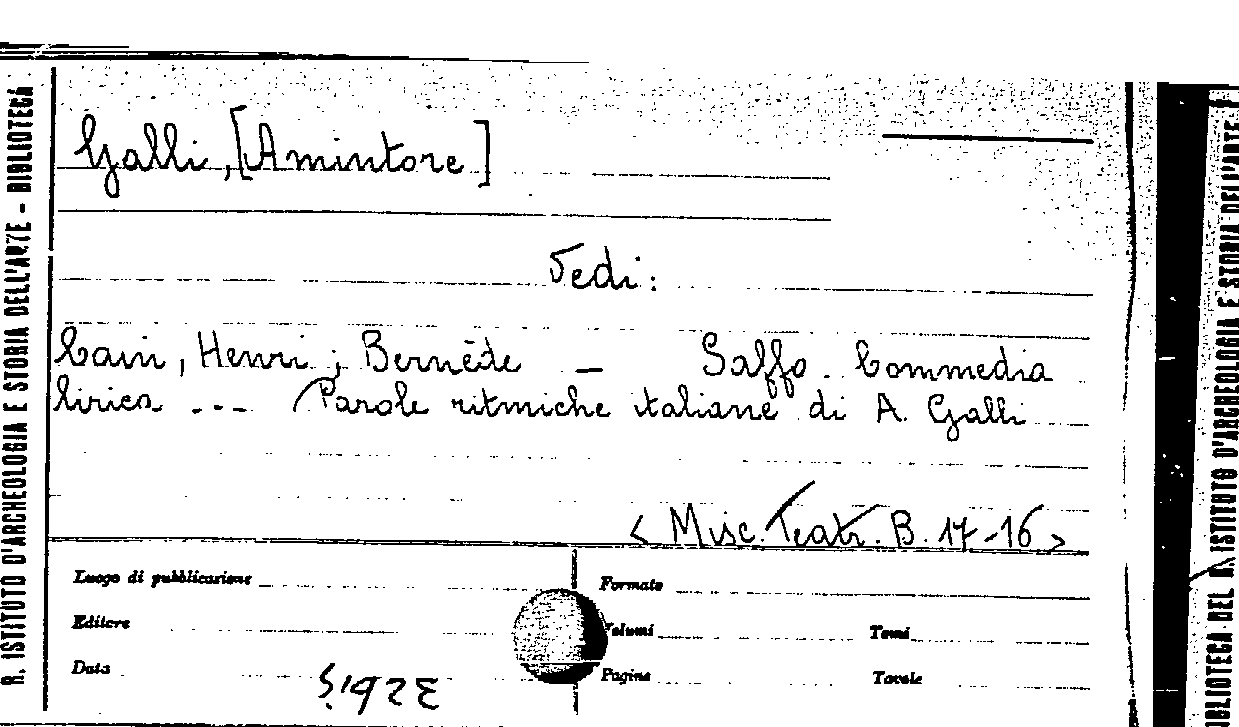 Galli, [Amintore]
Vedi:
Cain, Henri; Bernède — Saffo. Commedia
lirica --- Parole ritmiche italiane di A. Galli
< Misc. Teatr. B. 17-16 >
Luogo di pubblicazione
Formato
Editore
Volumi
Tomi
Data
Pagine
Tavole
R. ISTITUTO D'ARCHEOLOGIA E STORIA DELL'ARTE - BIBLIOTECA
BIBLIOTECA DEL R. ISTITUTO D'ARCHEOLOGIA E STORIA DELL'ARTE